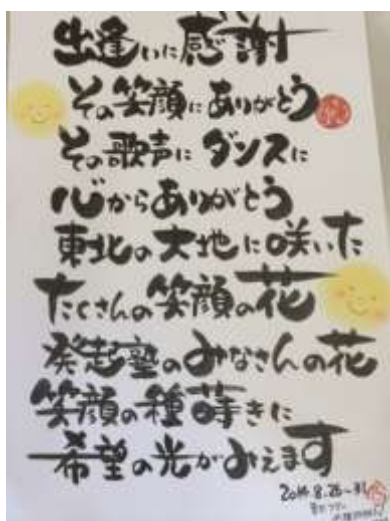 出逢いに感謝
その笑顔にありがとう
その歌声にダンスに
心からありがとう
東北の大地に咲いた
たくさんの笑顔の花
発起塾のみなさんの花
笑顔の種蒔きに
希望の光がみえます